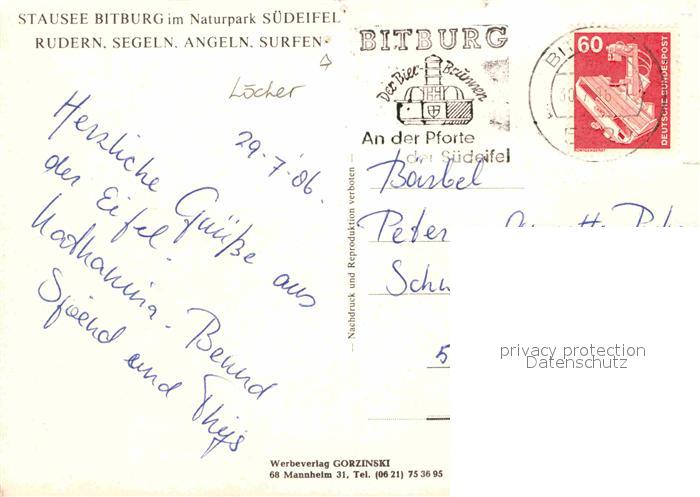 STAUSEE BITBURG im Naturpark SÜDEIFEL
RUDERN. SEGELN. ANGELN. SURFEN
Löcher
29.7.'86.
Herzliche Grüße aus
der Eifel.
Katharina. Bernd
Sjoerd und Thijs
Nachdruck und Reproduktion verboten
BITBURG
Der Bier-Brunnen
An der Pforte
der Südeifel
BIT
60
DEUTSCHE BUNDESPOST
Bärbel
Peter
Sch
5
privacy protection
Datenschutz
Werbeverlag GORZINSKI
68 Mannheim 31, Tel. (06 21) 75 36 95